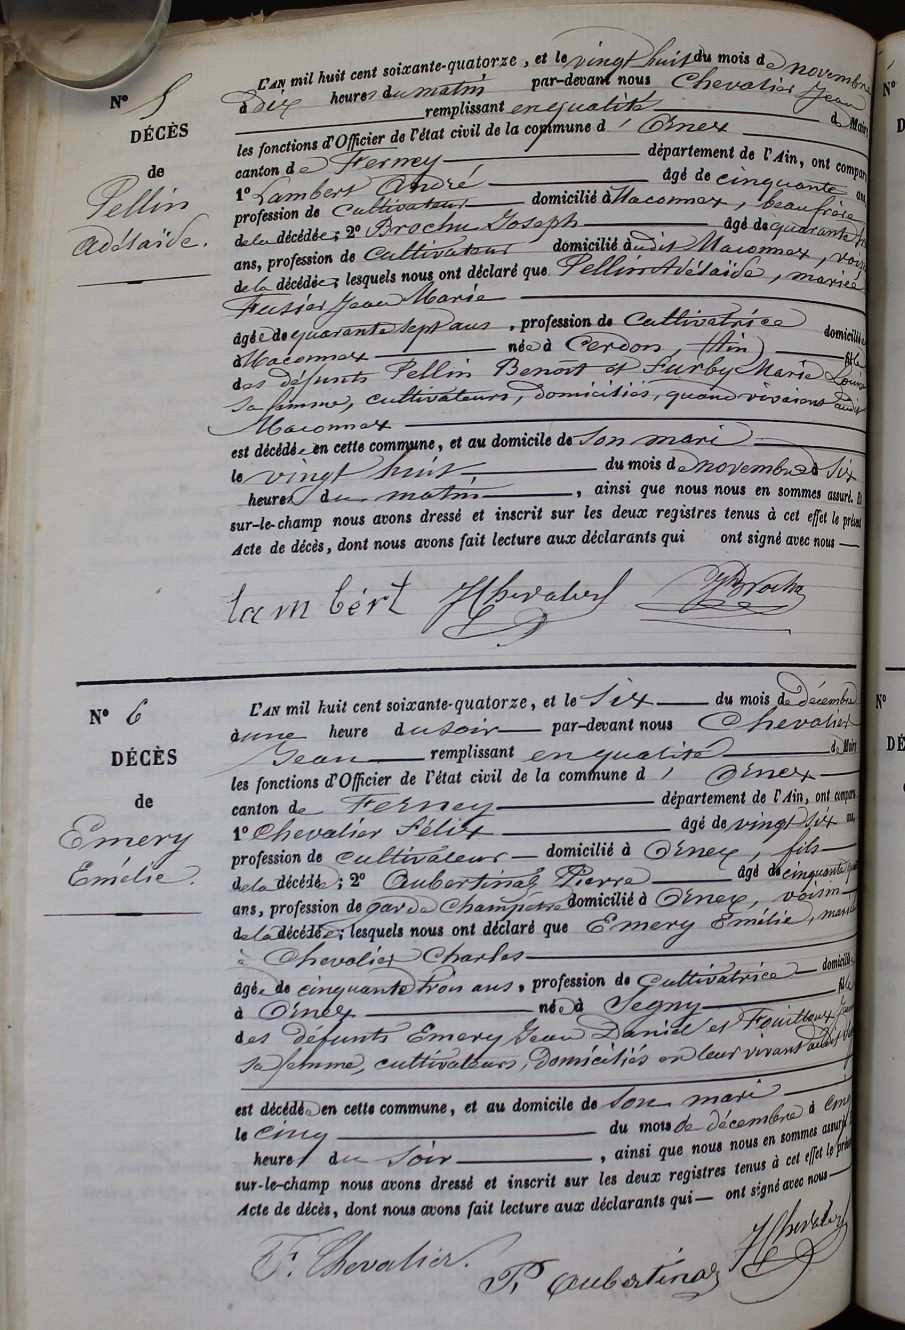 N° 5
DÉCÈS
de
Pellin
Adélaïde.
L'AN mil huit cent soixante-quatorze, et le vingt huit du mois de novembre
à dix heures du matin par-devant nous Chevalier Jean
remplissant en qualité de Maire
les fonctions d'Officier de l'état civil de la commune d' Ornex
canton de Ferney département de l'Ain, ont compar
1° Lambert André âgé de cinquante ans
profession de cultivateur domicilié à Maconnex, beaufrère
de la décédée; 2° Brochu Joseph âgé de quarante
ans, profession de cultivateur domicilié à udit Maconnex, voisin
de la décédée; lesquels nous ont déclaré que Pellin Adélaïde, mariée
Fusier Jean Marie
âgée de quarante sept ans, profession de Cultivatrice domiciliée
à Maconnex née à Cerdon, (Ain) fille
des défunts Pellin Benoît et Furby Marie Louise
sa femme, cultivateurs, domiciliés, quand vivaient audit
Maconnex
est décédée en cette commune, et au domicile de son mari
le vingt huit du mois de novembre à six
heures du matin, ainsi que nous nous en sommes assuré. Et
sur-le-champ nous avons dressé et inscrit sur les deux registres tenus à cet effet le présent
Acte de décès, dont nous avons fait lecture aux déclarants qui ont signé avec nous
lambért JChevalier JhBrochu
N° 6
DÉCÈS
de
Emery
Emélie.
L'AN mil huit cent soixante-quatorze, et le six du mois de décembre
à une heure du soir par-devant nous Chevalier
Jean remplissant en qualité de Maire
les fonctions d'Officier de l'état civil de la commune d' Ornex
canton de Ferney département de l'Ain, ont comparu
1° Chevalier Félix âgé de vingt six ans,
profession de cultivateur domicilié à Ornex, fils
de la décédée; 2° Aubertinaz Pierre âgé de cinquante
ans, profession de garde Champêtre domicilié à Ornex, voisin
de la décédée; lesquels nous ont déclaré que Emery Emélie, mariée
à Chevalier Charles
âgée de cinquante trois ans, profession de Cultivatrice domiciliée
à Ornex née à Segny fille
des défunts Emery Jean Daniel et Fouilloux
sa femme, cultivateurs, domiciliés en leur vivant audit
est décédée en cette commune, et au domicile de son mari
le cinq du mois de décembre à cinq
heures du soir, ainsi que nous nous en sommes assuré.
sur-le-champ nous avons dressé et inscrit sur les deux registres tenus à cet effet le présent
Acte de décès, dont nous avons fait lecture aux déclarants qui ont signé avec nous
F. Chevalier. P. Aubertinaz JChevalier